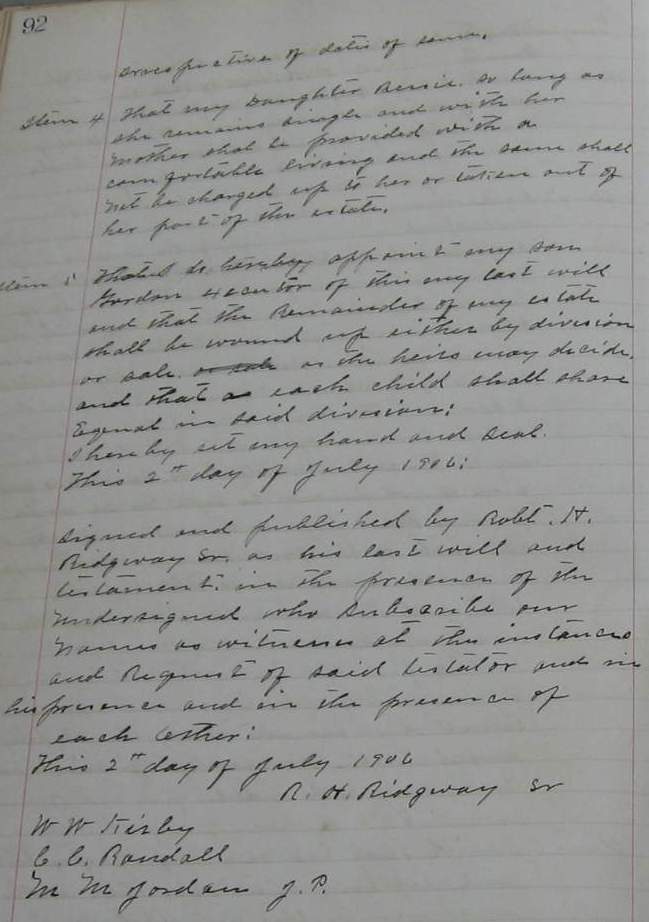 92
irrespective of date of same.
Item 4 That my Daughter Bessie so long as
she remains single and with her
Mother shal be provided with a
comfortable living and the same shall
Not be charged up to her or taken out of
her part of the estate.
Item 5 That I do hereby appoint my son
Gordon executor of this my last will
and that the Remainder of my estate
shall be wound up either by division
or sale. or sale as the heirs may decide,
and that as each child shall share
Equal in said division:
I hereby set my hand and Seal.
This 2nd day of July 1906:
Signed and published by Robt. H.
Ridgway Sr. as his last will and
testament. in the presence of the
undersigned who subscribe our
Names as witnesses at the instance
and Request of said testator and in
his presence and in the presence of
each other:
This 2nd day of July 1906
R. H. Ridgway Sr
W W Kirby
C. C. Randall
M M Jordan J. P.